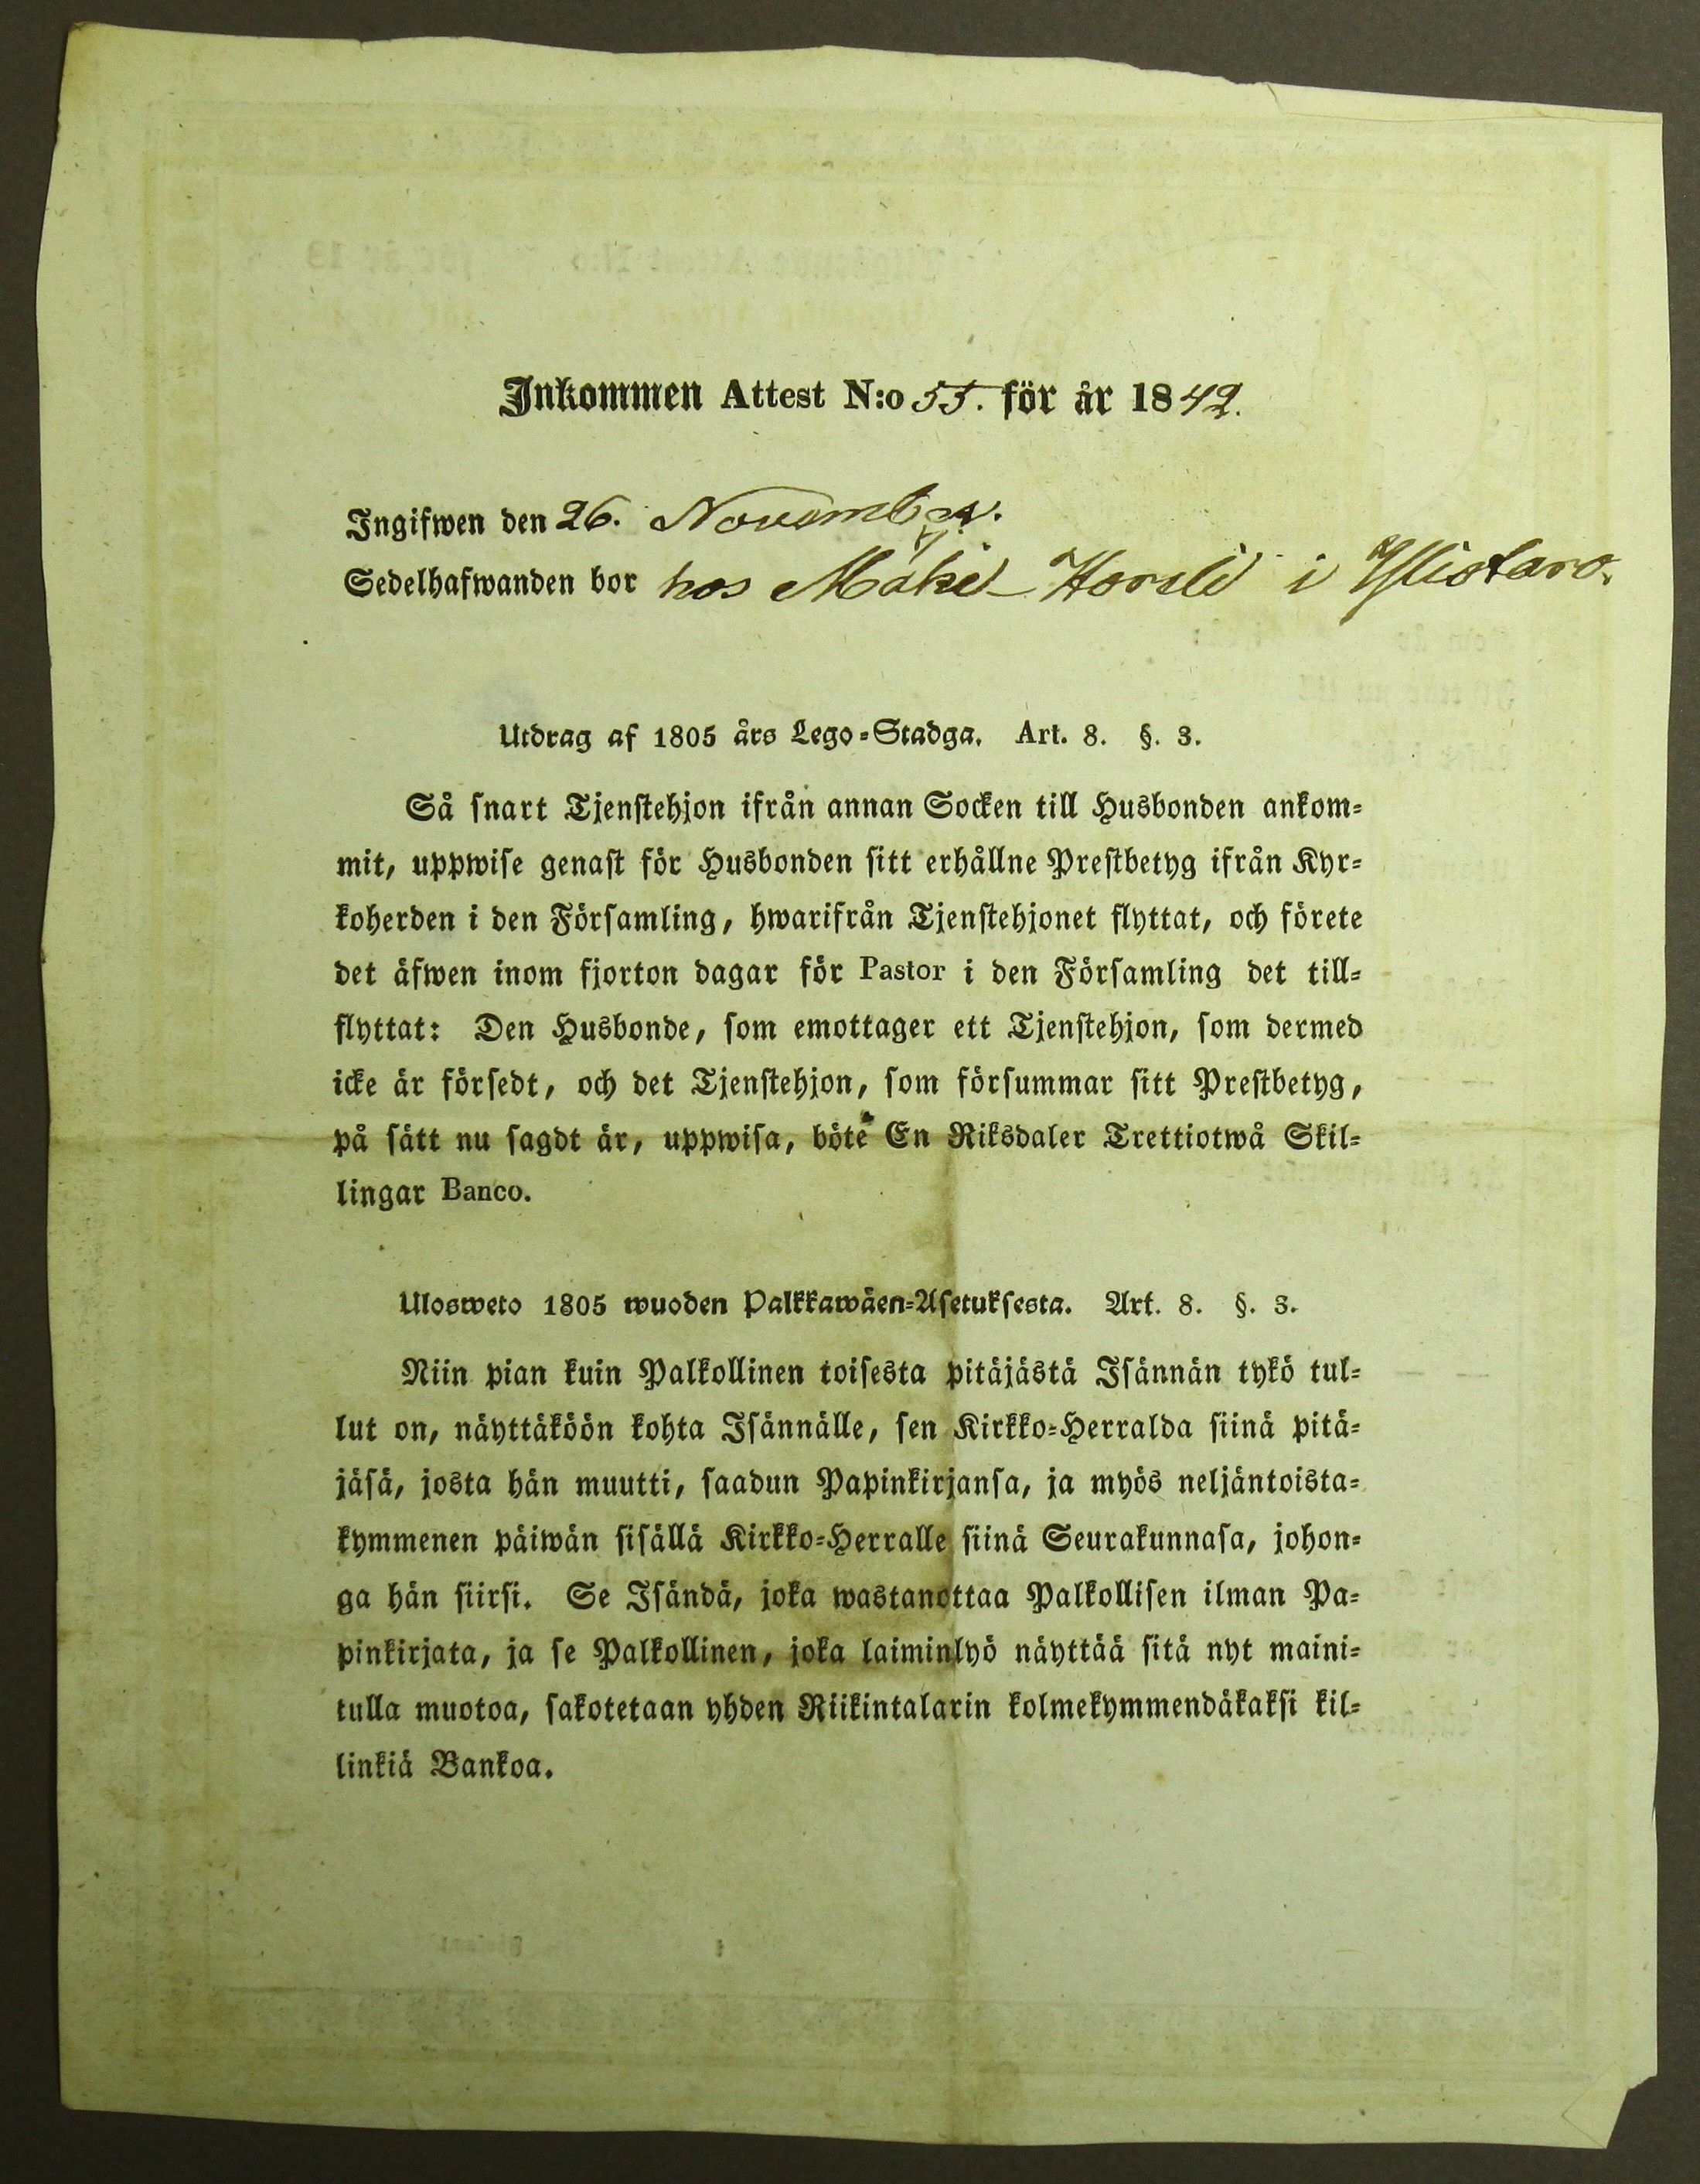 Inkommen Attest N:o 55. för år 1842.
Ingifwen den 26. November.
Sedelhafwanden bor hos Mäki- i Ylistaro.
Utdrag af 1805 års Lego-Stadga. Art. 8. §. 3.
Så snart Tjenstehjon ifrån annan Socken till Husbonden ankom-
mit, uppwise genast för Husbonden sitt erhållne Prestbetyg ifrån Kyr-
koherden i den Församling, hwarifrån Tjenstehjonet flyttat, och förete
det äfwen inom fjorton dagar för Pastor i den Församling det till-
flyttat: Den Husbonde, som emottager ett Tjenstehjon, som dermed
icke är försedt, och det Tjenstehjon, som försummar sitt Prestbetyg,
på sätt nu sagdt är, uppwisa, böte En Riksdaler Trettiotwå Skil-
lingar Banco.
Ulosweto 1805 wuoden Palkkawäen-Asetuksesta. Art. 8. §. 3.
Niin pian kuin Palkollinen toisesta pitäjästä Isännän tykö tul-
lut on, näyttäköön kohta Isännälle, sen Kirkko-Herralda siinä pitä-
jäsä, josta hän muutti, saadun Papinkirjansa, ja myös neljäntoista-
kymmenen päiwän sisällä Kirkko-Herralle siinä Seurakunnasa, johon-
ga hän siirsi. Se Isändä, joka wastanottaa Palkollisen ilman Pa-
pinkirjata, ja se Palkollinen, joka laiminlyö näyttää sitä nyt maini-
tulla muotoa, sakotetaan yhden Riikintalarin kolmekymmendäkaksi kil-
linkiä Bankoa.